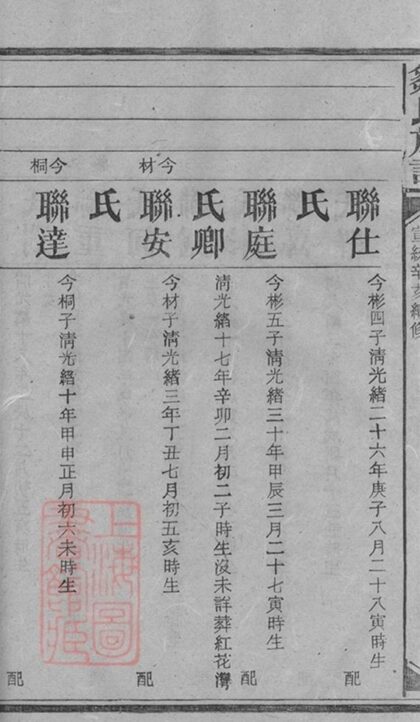 宣統辛亥續修
聯仕
今彬四子清光緒二十六年庚子八月二十八寅時生
配
氏
聯庭
今彬五子清光緒三十年甲辰三月二十七寅時生
配
氏卿
清光緒十七年辛卯二月初二子時生沒未詳葬紅花灣
今材
聯安
今材子清光緒三年丁丑七月初五亥時生
配
氏
今桐
聯達
今桐子清光緒十年甲申正月初六未時生
配
上海圖
書館藏